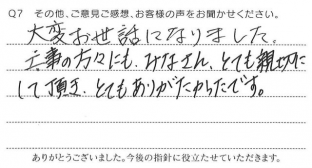 Q7 その他、ご意見ご感想、お客様の声をお聞かせください。
大変お世話になりました。
工事の方々にも、みなさん、とても親切に
して頂き、とてもありがたかったです。
ありがとうございました。今後の指針に役立たせていただきます。